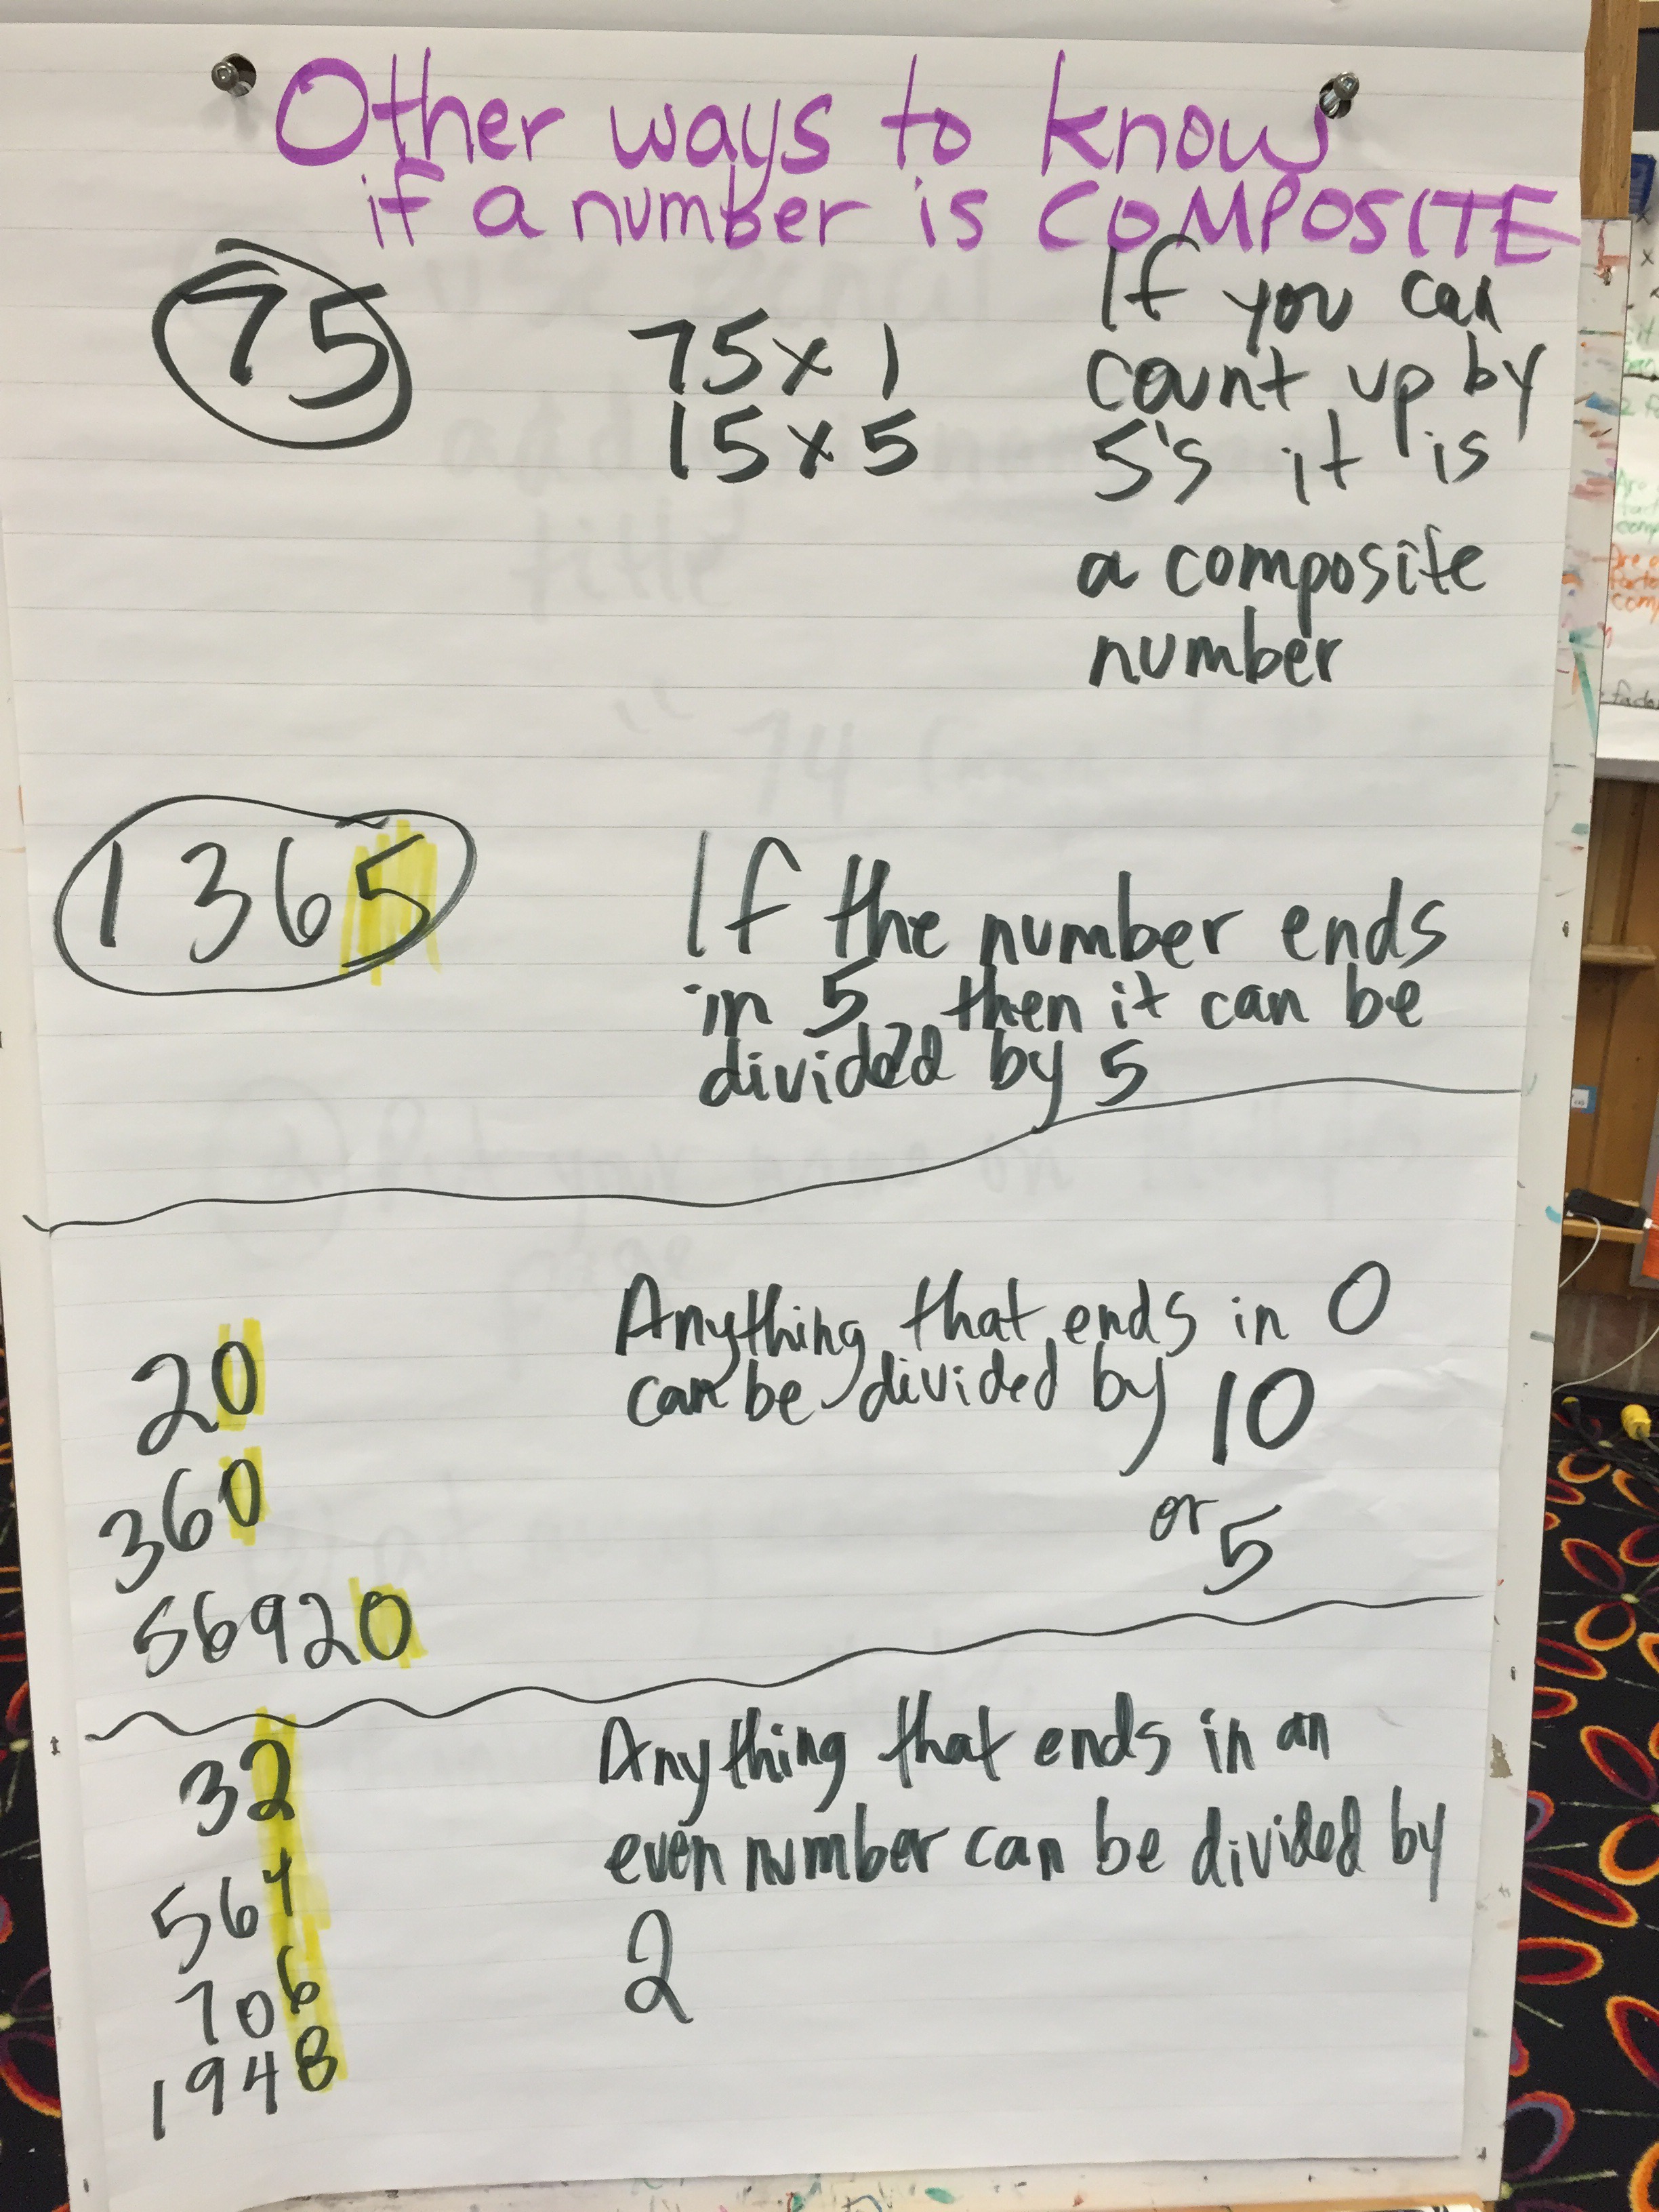 Other ways to know
if a number is COMPOSITE
75
75 x 1
15 x 5
If you can
count up by
5's it is
a composite
number
1365
If the number ends
in 5 then it can be
divided by 5
20
360
56920
Anything that ends in 0
can be divided by 10
or 5
32
564
706
1948
Anything that ends in an
even number can be divided by
2